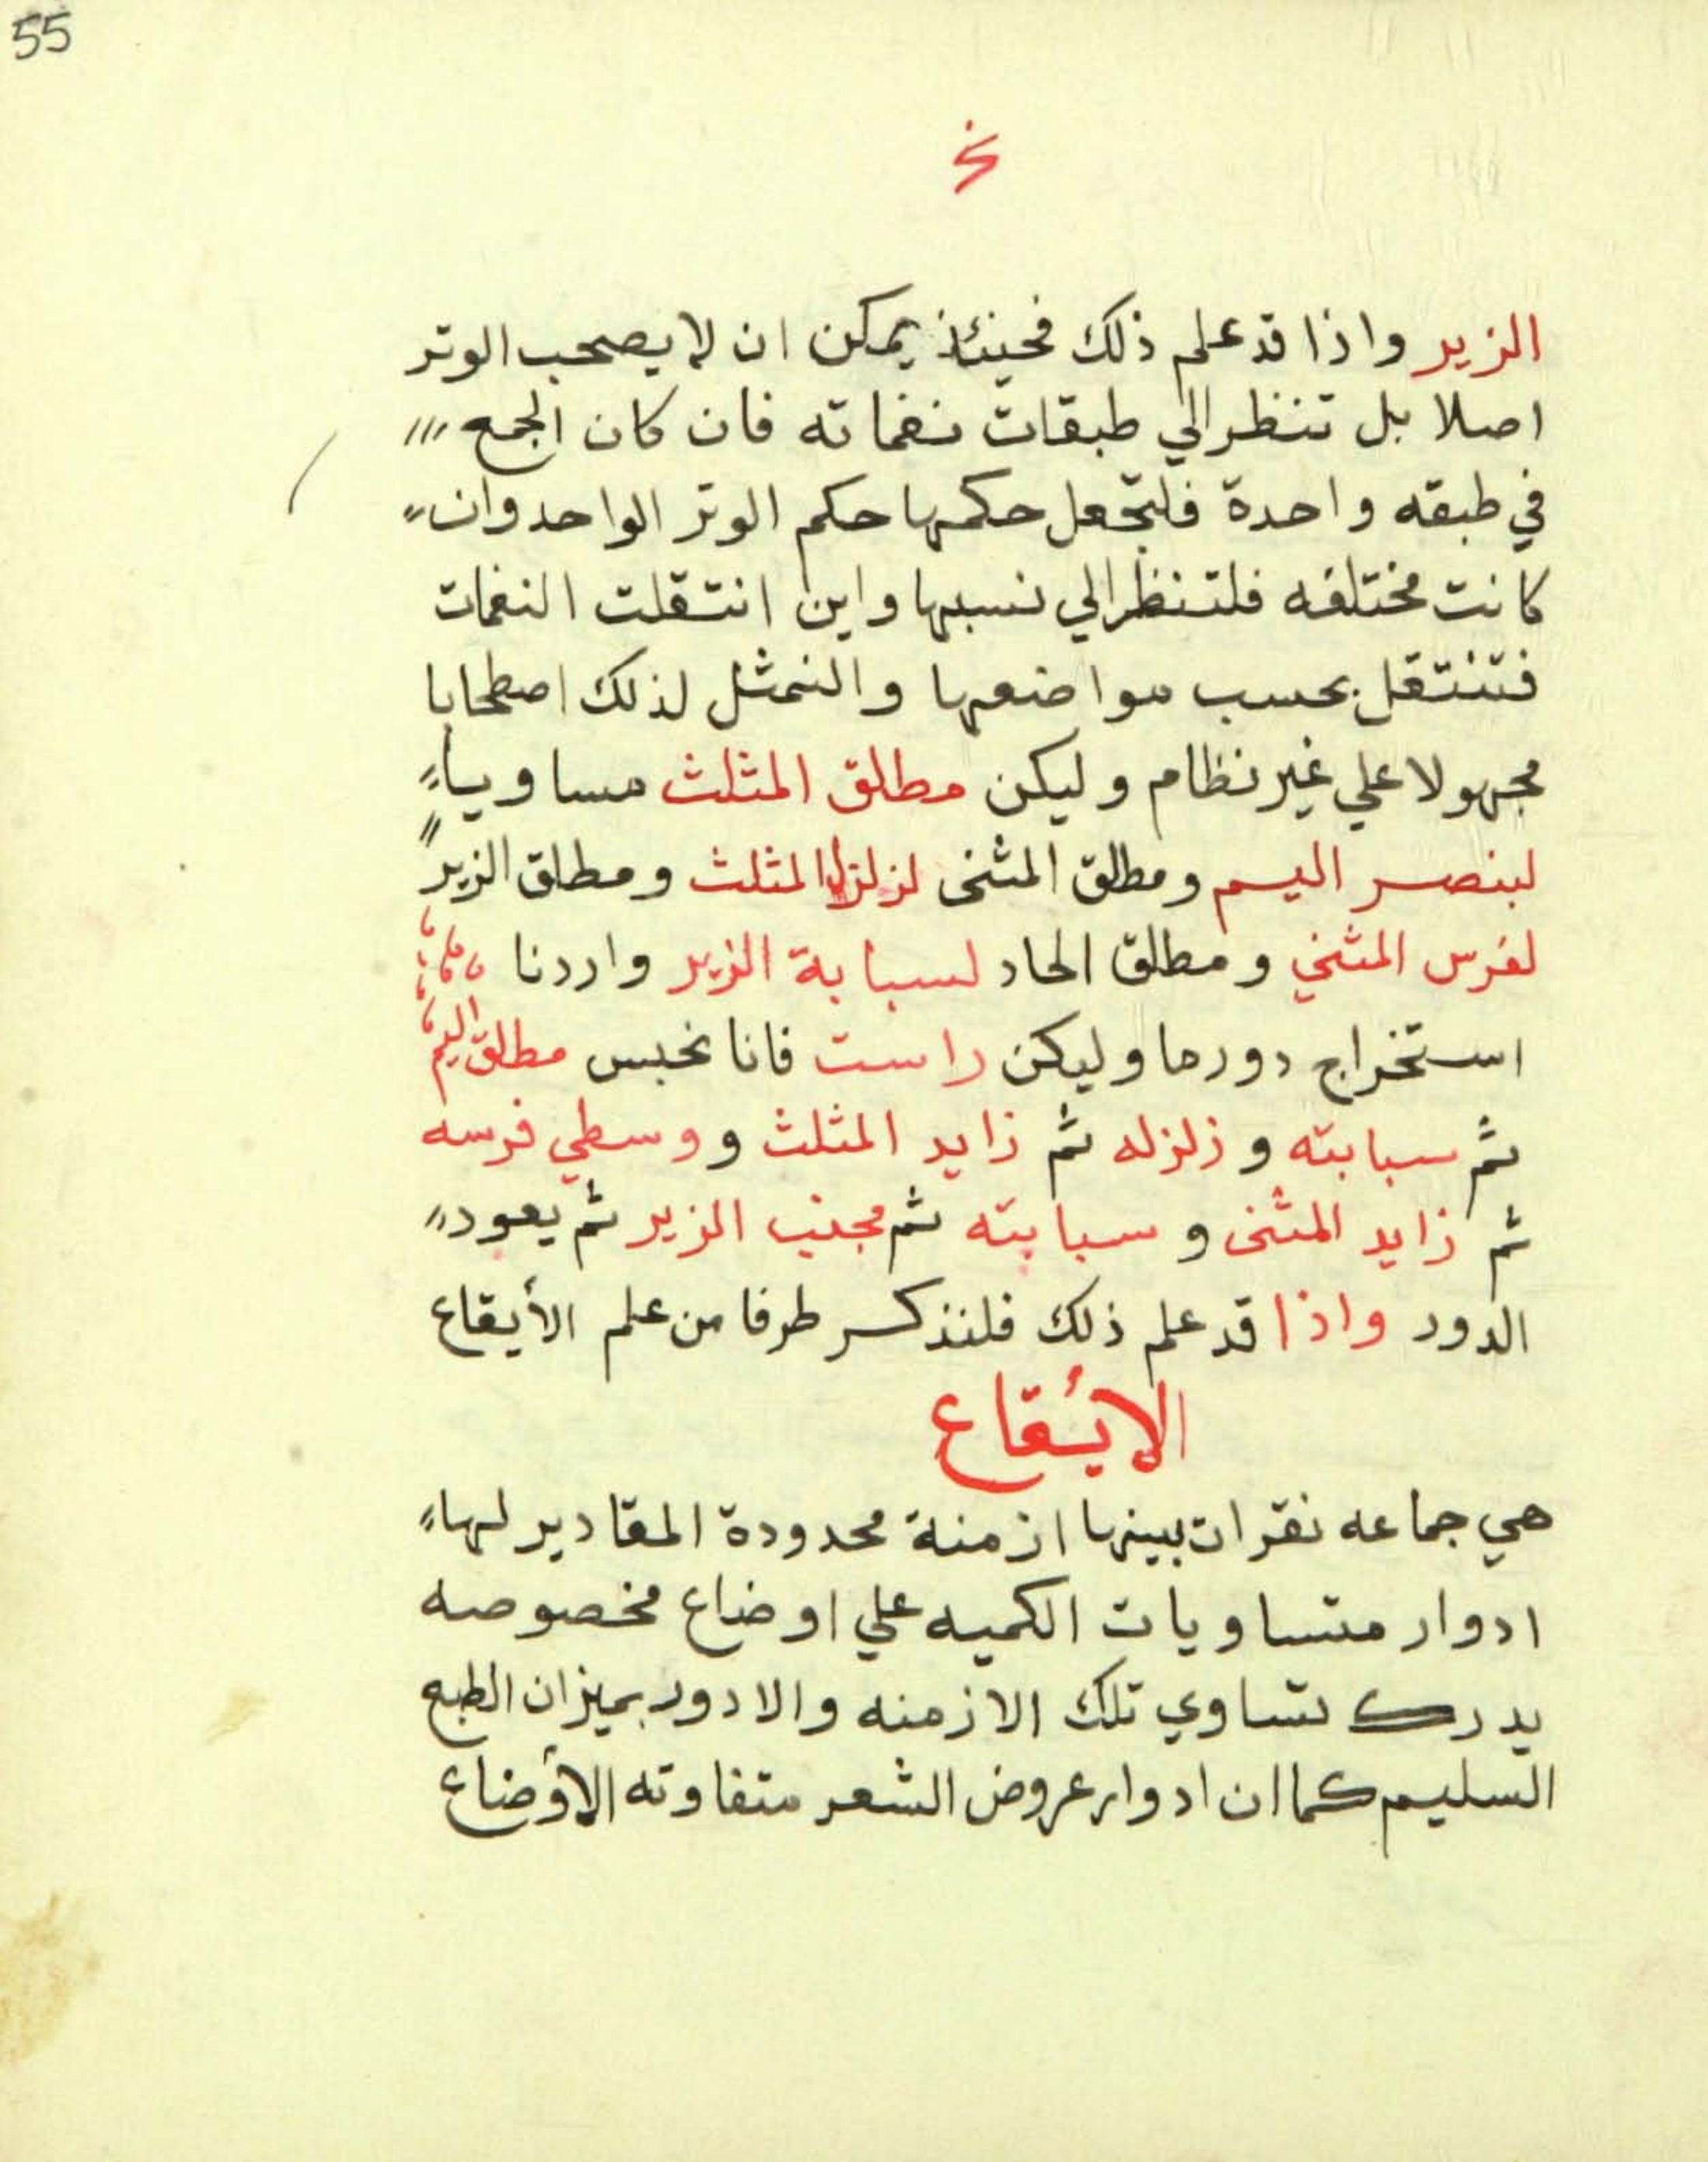 55
الزير واذا قد علم ذلك فحينئذ يمكن ان لا يصحب الوتر
اصلا بل تنظر الي طبقات نغماته فان كان الجمع
في طبقه واحدة فلتجعل حكمها حكم الوتر الواحد وان
كانت مختلفه فلتنظر الي نسبها واين انتقلت النغمات
فتنتقل بحسب مواضعها والنمثل لذلك اصطحابا
مجهولا علي غير نظام وليكن مطلق المثلث مساويا
لبنصر اليم ومطلق المثنى لزلزل المثلث ومطلق الزير
لفرس المثني ومطلق الحاد لسبابة الزير واردنا
استخراج دور ما وليكن راست فانا نحبس مطلق اليم
ثم سبابته وزلزله ثم زايد المثلث ووسطي فرسه
ثم زايد المثنى وسبابته ثم مجنب الزير ثم يعود
الدور واذا قد علم ذلك فلنذكر طرفا من علم الأيقاع
الايُقاع
هي جماعه نقرات بينها ازمنة محدودة المقادير لها
ادوار متساويات الكميه علي اوضاع مخصوصه
يدرك تساوي تلك الازمنه والادور بميزان الطبع
السليم كما ان ادوار عروض الشعر متفاوته الأوضاع